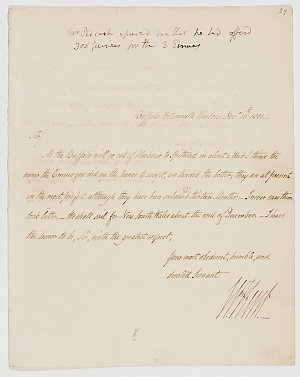 37
Mr Pidcock assured me that he had offered
300 Guineas for the 3 Emues
Buffalo Portsmouth Harbour Novr. 10th 1801
Sir
As the Buffalo will go out of Harbour to Spithead in about a week I think the
sooner the Emues you did me the honor to accept, are landed the better, they are at present
in the most perfect although they have been onboard thirteen Months — I never saw them
look better — We shall sail for New South Wales about the end of December — I have
the honor to be, Sir, with the greatest respect,
Your most obedient, humble, and
devoted Servant
Wm Kent